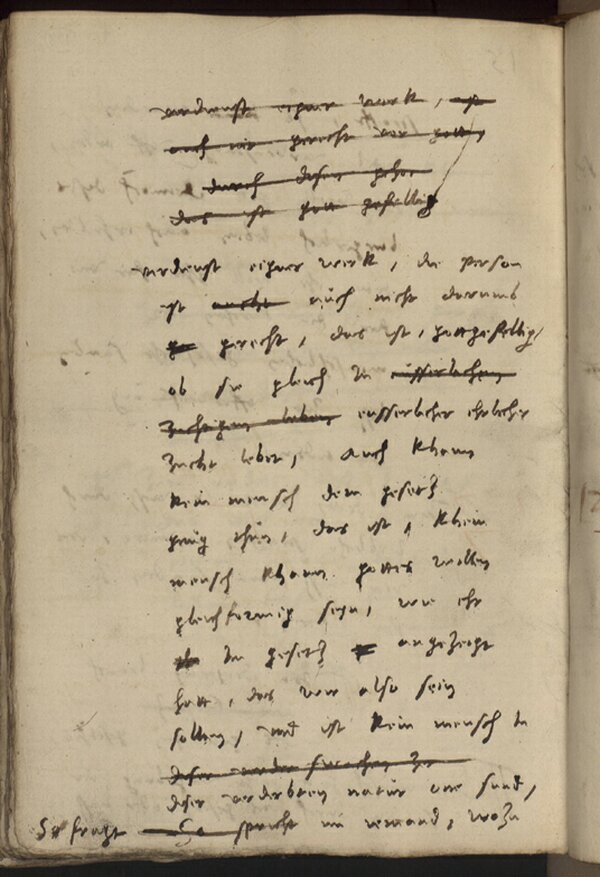 verdienst eigner werk, ist
auch nit gerecht vor gotth
durch disen gehor
das ist gott gefellig
verdienst eigner werk, die person
ist auch nicht darumb
gerecht, das ist, gottgefellig,
ob sie gleich in eusserlichen
zuchtigem leben eusserlicher ehrlicher
zucht lebet, Auch khann
kein mensch dem gesetz
gnug thun, das ist, khein
mensch khann gottes willen
gleichformig seyn, wie ehr
im gesetz angezeigt
hatt, das wir also sein
sollen, und ist kein mensch in
diser
diser verderbten natur one sund,
So fragt So spricht nu iemand, wozu